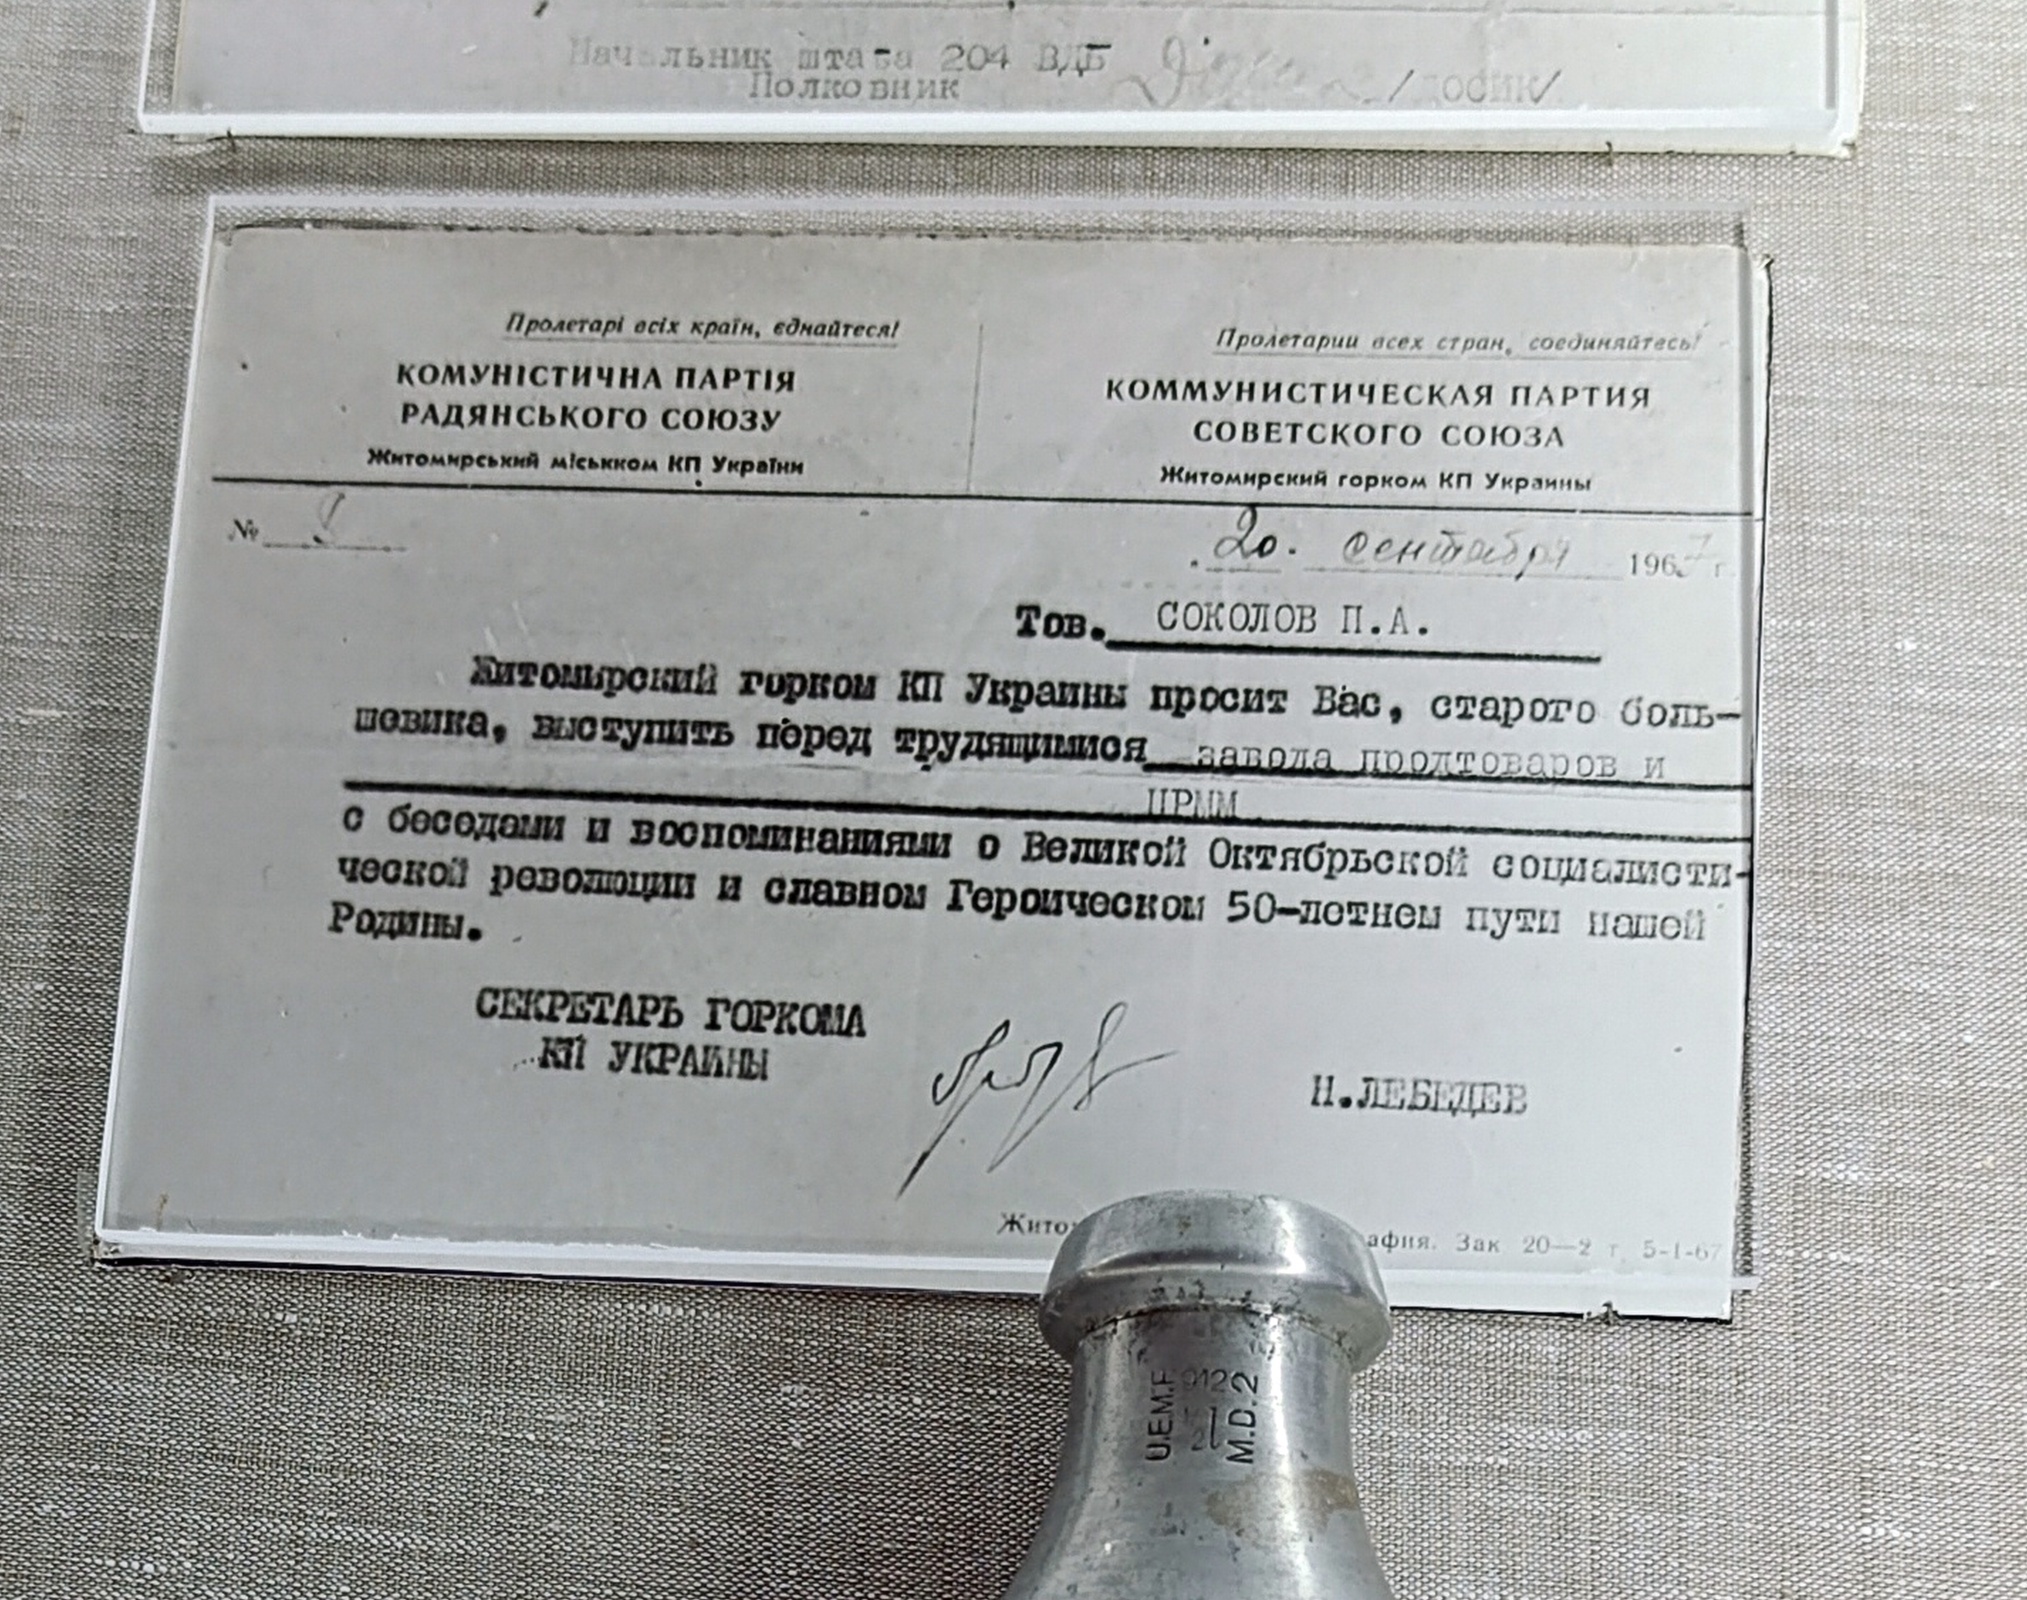 Начальник штаба 204 ВДБ
Полковник
Пролетарі всіх країн, єднайтеся!
КОМУНІСТИЧНА ПАРТІЯ
РАДЯНСЬКОГО СОЮЗУ
Житомирський міськком КП України
Пролетарии всех стран, соединяйтесь!
КОММУНИСТИЧЕСКАЯ ПАРТИЯ
СОВЕТСКОГО СОЮЗА
Житомирский горком КП Украины
№
20. сентября 1967 г.
Тов. СОКОЛОВ П.А.
Житомырский горком КП Украины просит Вас, старого боль-
шевика, выступить перед трудящимися завода продтоваров и
ЦРММ
с беседами и воспоминаниями о Великой Октябрьской социалисти-
ческой революции и славном Героическом 50-летнем пути нашей
Родины.
СЕКРЕТАРЬ ГОРКОМА
КП УКРАИНЫ
Н.ЛЕБЕДЕВ
Зак 20—2 т. 5-1-67
U.E.M.F.
M.D.2